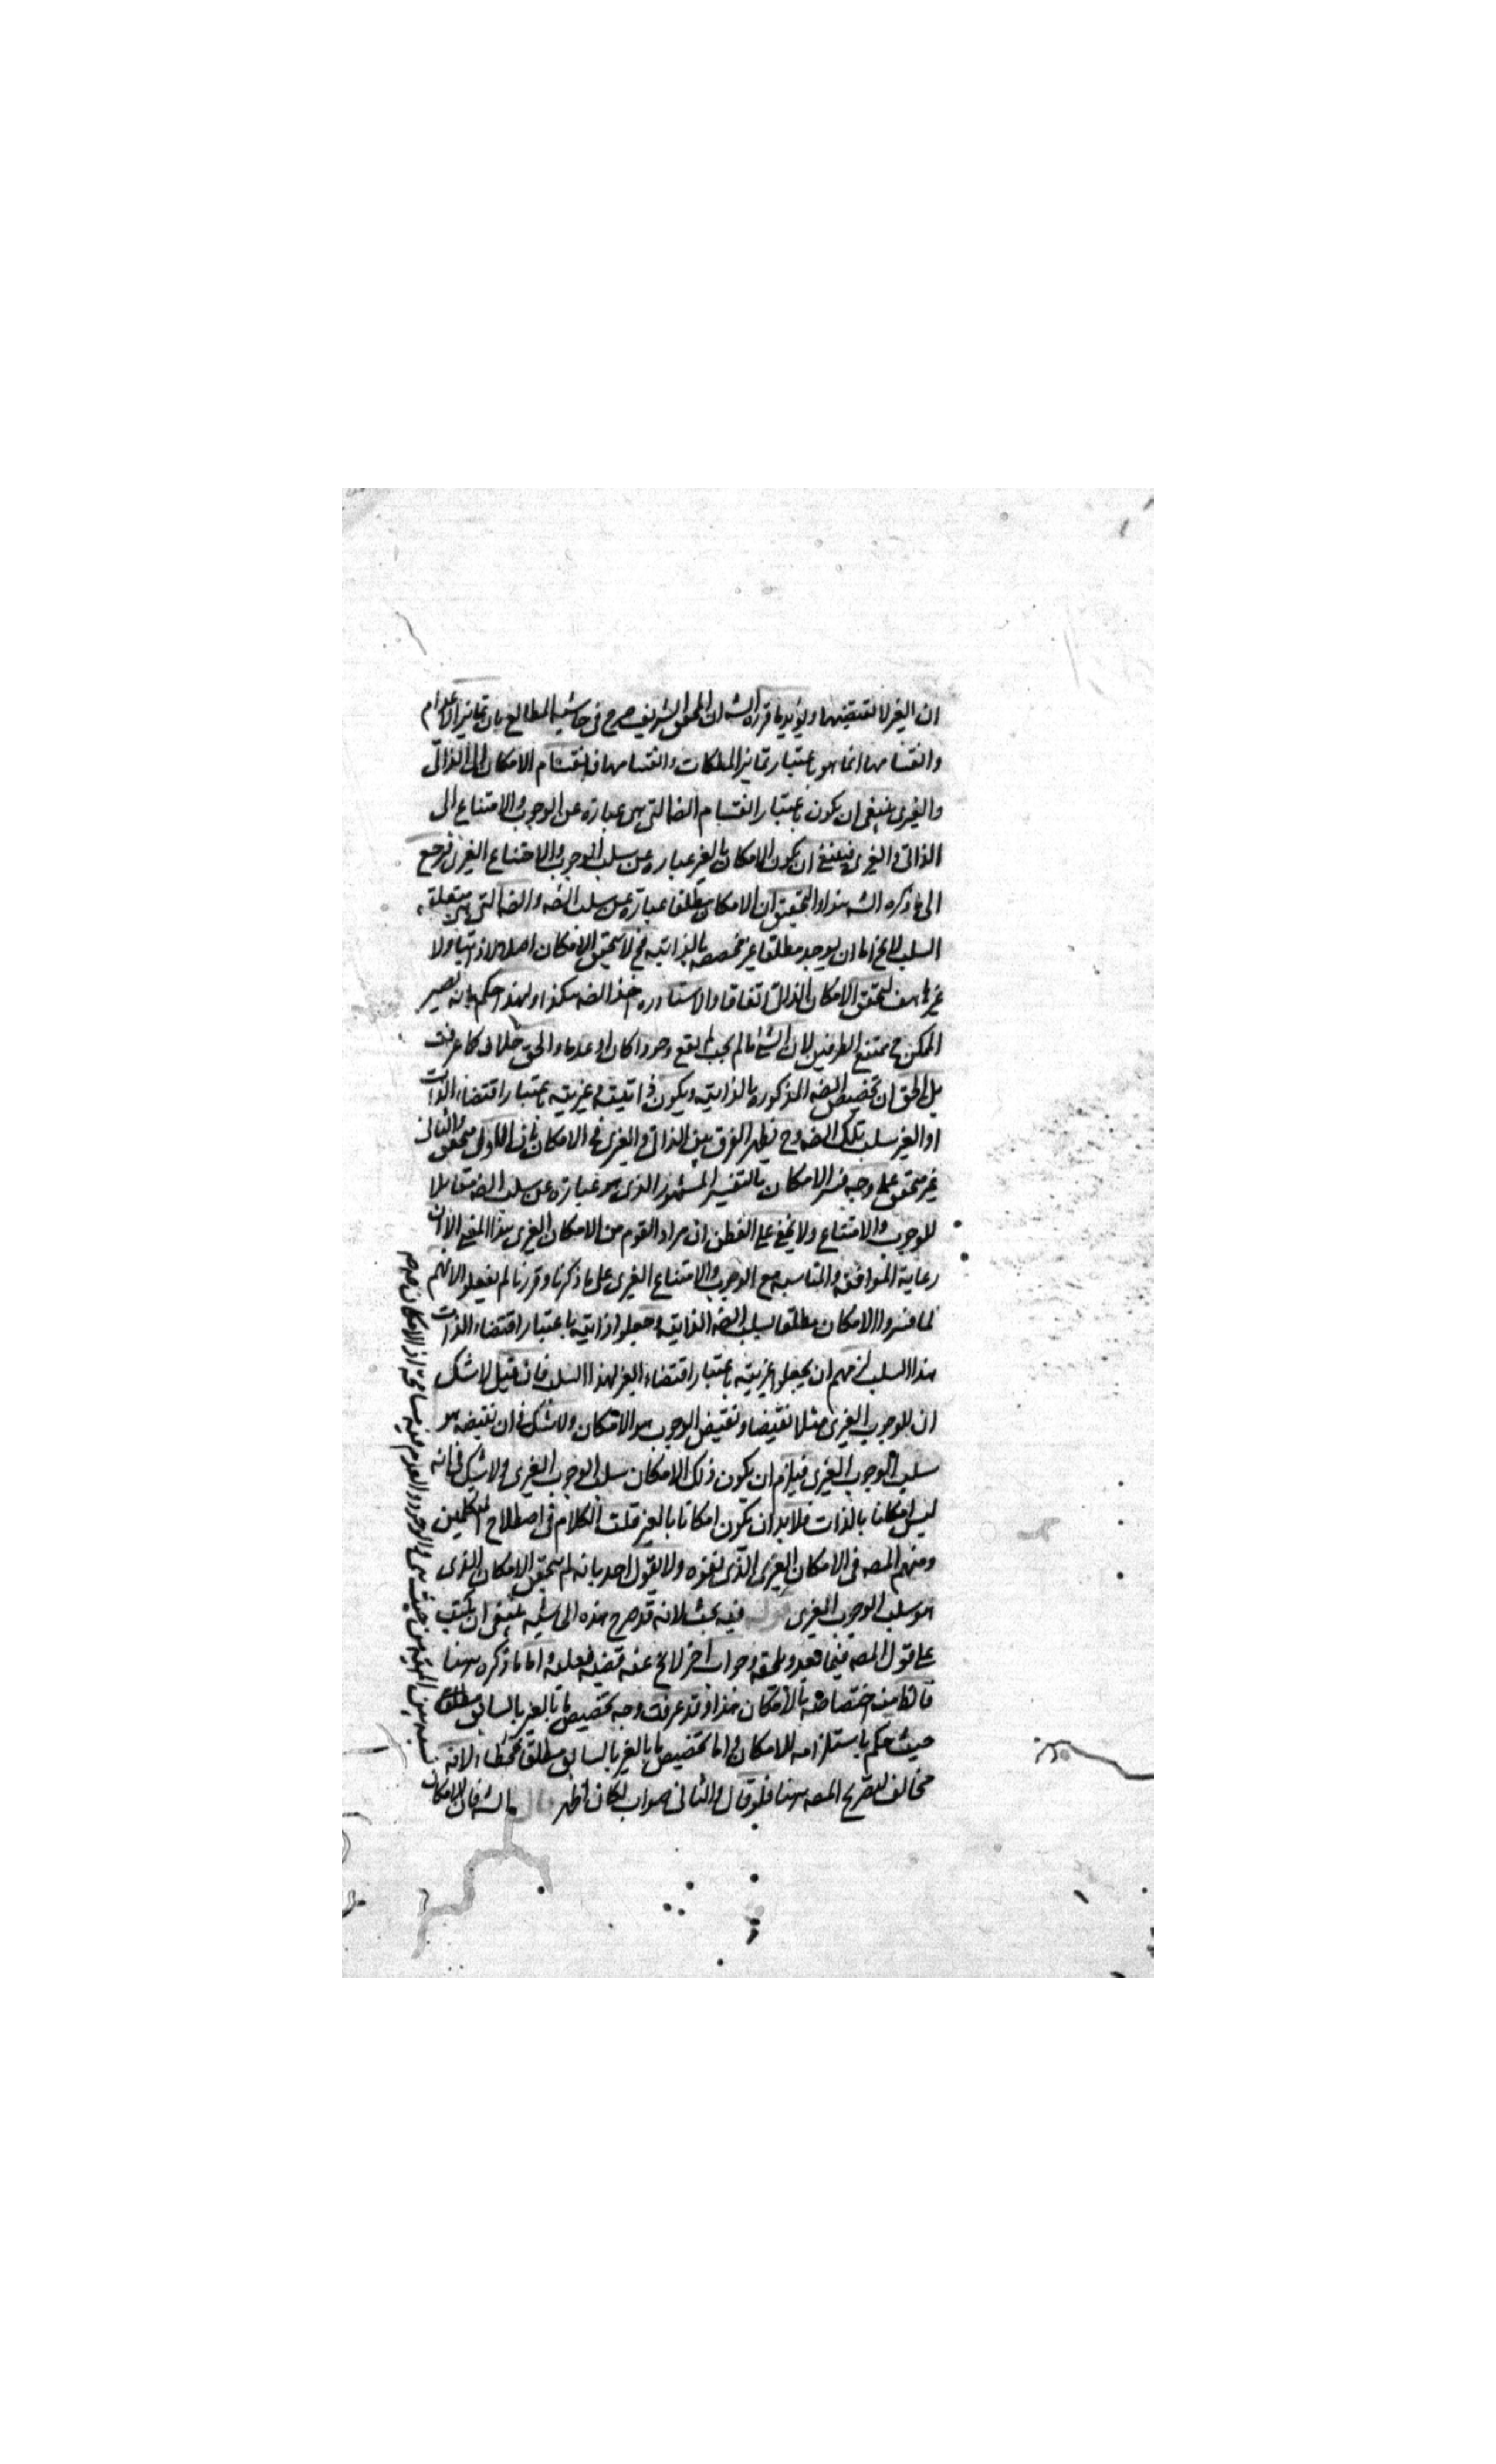 ان الغير لا تقتضيها ويؤيد ما قرره الشه ان المحقق الشريف صرح في حاشية المطالع بان تمايز الاعدام
وانقسامها انما هو باعتبار تمايز الملكات وانقسامها فانقسام الامكان الى الذاتي
والغيري ينبغي ان يكون باعتبار انقسام الضه التي هي عبارة عن الوجوب والامتناع الى
الذاتي والغيري فينبغي ان يكون الامكان بالغير عبارة عن سلب الوجوب والامتناع الغيري فرجع
الى ما ذكره الشه هذا والتحقيق ان الامكان مطلقا عبارة عن سلب الضه والضه التي هي متعلقة
السلب لا يخ اما ان يوجد مطلقا غير مخصصة بالذاتية فح لا يتحقق الامكان اصلا لا ذاتيا ولا
غيريا هف لتحقق الامكان الذاتي اتفاقا والاستاد ره اخذ الضه هكذا ولهذا حكم بانه يصير
الممكن ح ممتنع الطرفين لان الشئ ما لم يجب لم يقع وجودا كان او عدما والحق خلافه كما عرفت
بل الحق ان تخصيص الضه المذكورة بالذاتية ويكون ذاتيته وغيريته باعتبار اقتضاء الذات
او الغير سلب تلك الضه وح يظهر الفرق بين الذاتي والغيري في الامكان بان الاول متحقق والثاني
غير متحقق على وجه فسر الامكان بالتفسير المشهور الذي هو عبارة عن سلب الضه مقابلا
للوجوب والامتناع ولا يخفى على الفطن ان مراد القوم من الامكان الغيري هذا المعنى الا ان
رعاية الموافقة والمناسبة مع الوجوب والامتناع الغيري على ما ذكرنا وقررنا لم يفعلوا لانهم
لما فسروا الامكان مطلقا بسلب الضه الذاتية وجعلوا ذاتيته باعتبار اقتضاء الذات
هذا السلب لزمهم ان يجعلوا غيريته باعتبار اقتضاء الغير لهذا السلب فان قيل لا شك
ان للوجوب الغيري مثلا نقيضا ونقيض الوجوب هو الامكان ولا شك في ان نقيضه هو
سلب الوجوب الغيري فيلزم ان يكون ذلك الامكان سلب الوجوب الغيري ولا شك في انه
ليس امكانا بالذات فلا بد ان يكون امكانا بالغير قلت الكلام في اصطلاح المتكلمين
ومنهم المصه في الامكان الغيري الذي نفوه ولا يقول احد بانه لم يتحقق الامكان الذي
هو سلب الوجوب الغيري قوله فيه بحث لانه قد صرح هذه الحاشية ينبغي ان يكتب
على قول المصه فيما بعد ويلحقه وجوب اخر لا يخ عنه قضية فعلية واما ما ذكره ههنا
فالظ منه اختصاصه بالامكان هذا وقد عرفت وجه تخصيص ما بالغير بالسابق مطلقا
حيث حكم باستلزامه للامكان واما تخصيص ما بالغير بالسابق مطلقا فخطاء لانه
مخالف لتصريح المصه ههنا فلو قال والثاني صواب لكان اظهر قال الشه فان الامكان
نسبة بين المهية من حيث هي والوجود والعدم فيه مسامحة اذ الامكان